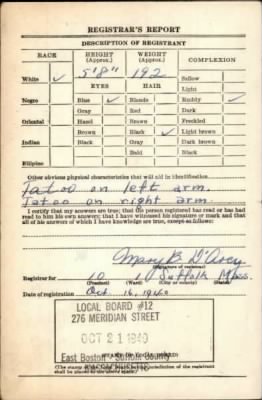 REGISTRAR'S REPORT
DESCRIPTION OF REGISTRANT
RACE HEIGHT (Approx.) WEIGHT (Approx.) COMPLEXION
White ✓ 5'8" 192 Sallow
EYES HAIR Light
Negro Blue ✓ Blonde Ruddy ✓
Gray Red Dark
Oriental Hazel Brown Freckled
Brown Black ✓ Light brown
Indian Black Gray Dark brown
Bald Black
Filipino
Other obvious physical characteristics that will aid in identification
Tatoo on left arm.
Tatoo on right arm
I certify that my answers are true; that the person registered has read or has had
read to him his own answers; that I have witnessed his signature or mark and that
all of his answers of which I have knowledge are true, except as follows:
Mary B D'Arcy
(Signature of registrar)
Registrar for 10 1 Suffolk Mass.
(Precinct) (Ward) (City or county) (State)
Date of registration Oct. 16, 1940
LOCAL BOARD #12
276 MERIDIAN STREET
OCT 21 1940
East Boston - Suffolk County